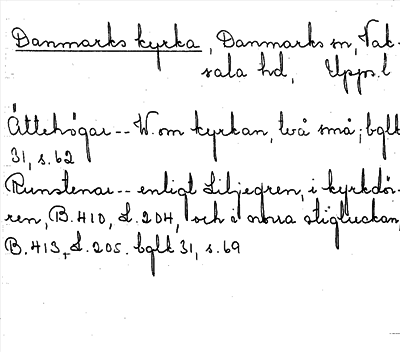 Danmarks kyrka, Danmarks sn, Vak-
sala hd, Upps. l
Ättehögar -- W. om kyrkan, två små; bqlk
31, s. 62
Runstenar -- enligt Liljegren, i kyrkdör-
ren, B. 410, L. 204, och i norra stigluckan,
B. 413, L. 205. bqlk 31, s. 69